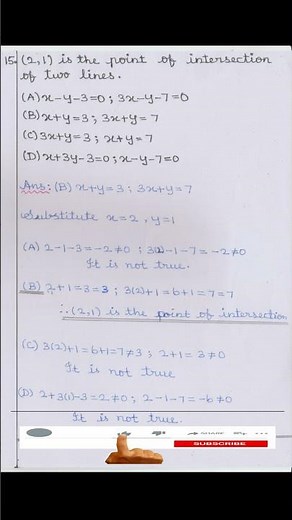 15. (2,1) is the point of intersection
of two lines.
(A) x-y-3=0 ; 3x-y-7=0
(B) x+y=3 ; 3x+y=7
(C) 3x+y=3 ; x+y=7
(D) x+3y-3=0 ; x-y-7=0
Ans: (B) x+y=3 ; 3x+y=7
Substitute x=2, y=1
(A) 2-1-3=-2≠0 ; 3(2)-1-7=-2≠0
It is not true.
(B) 2+1=3=3 ; 3(2)+1=6+1=7=7
∴ (2,1) is the point of intersection
(C) 3(2)+1=6+1=7≠3 ; 2+1=3≠0
It is not true
(D) 2+3(1)-3=2≠0 ; 2-1-7=-6≠0
It is not true.
SHARE
SUBSCRIBE